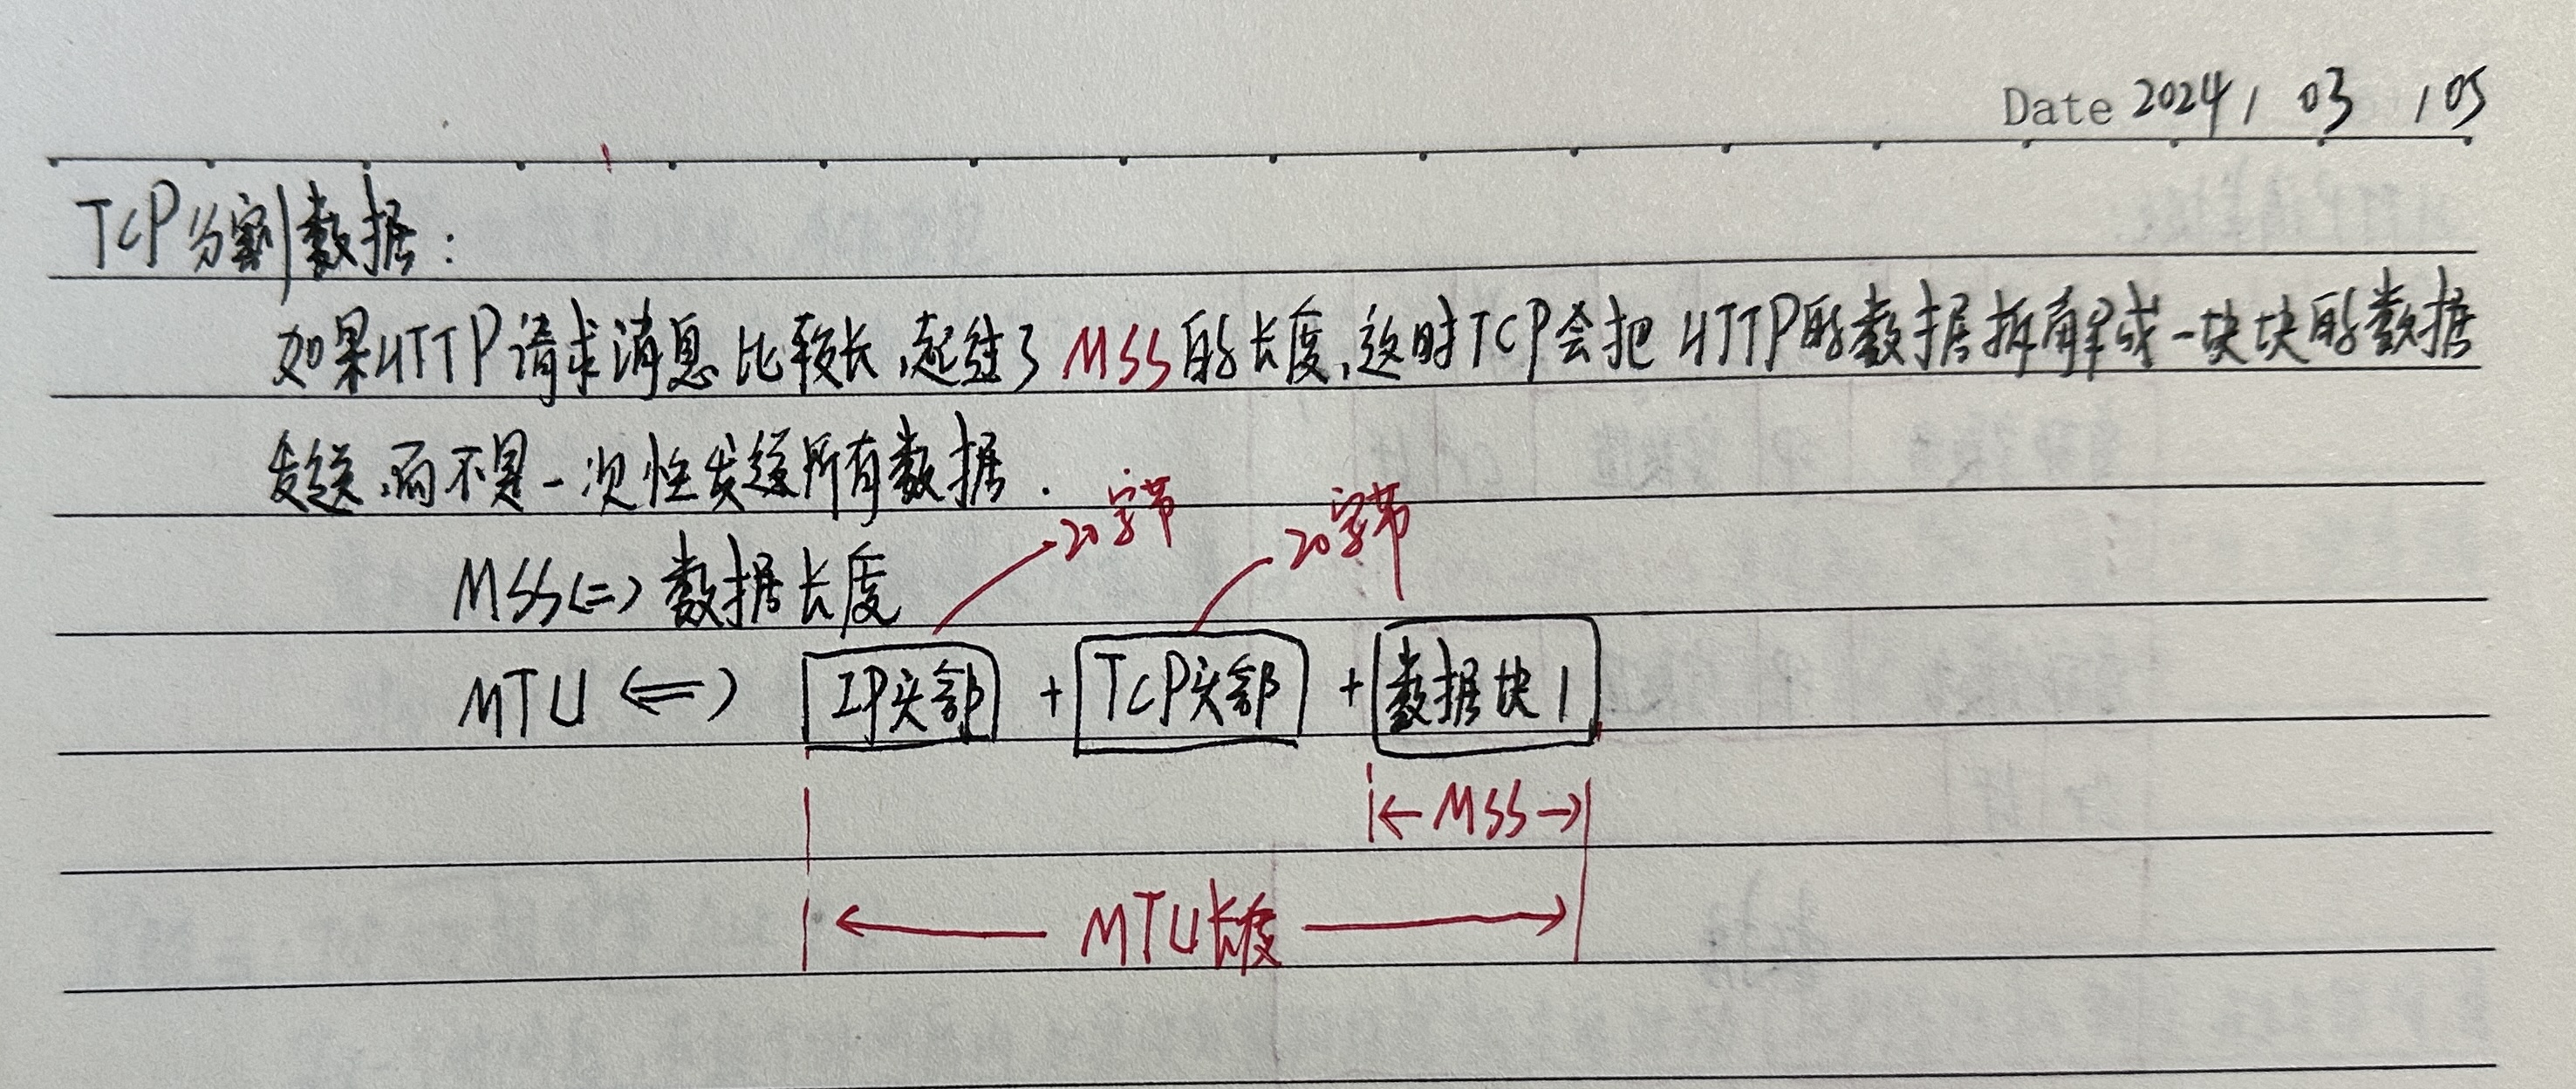 Date 2024 / 03 / 05
TCP分割数据：
如果HTTP请求消息比较长,超过了MSS的长度,这时TCP会把HTTP的数据拆解成一块块的数据
发送,而不是一次性发送所有数据.
20字节 20字节
MSS<=>数据长度
MTU <=> IP头部 + TCP头部 + 数据块1
|← MSS →|
← MTU长度 →